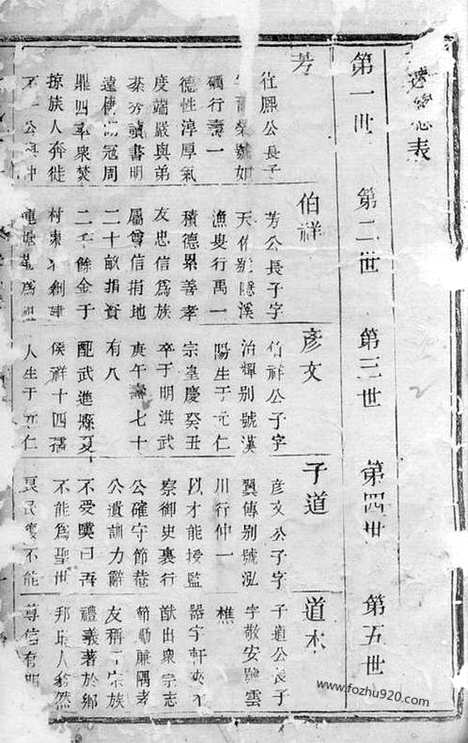 表
第一世
第二世
第三世
第四世
第五世
芳
往熙公長子
榮號如
礀行壽一
德性淳厚氣
度端嚴與弟
芳讀書明
遠冠周
鼎四率衆焚
掠族人奔徙
一公與仲
伯祥
芳公長子字
天佑別號隱溪
漁叟行萬一
積德累善孝
友忠信為族
屬尊信捐地
二十畝捐資
二千餘金于
村東創建
塘為
彥文
伯祥公子字
治輝別號漢
陽生于元仁
宗皇慶癸丑
卒于明洪武
庚午壽七十
有八
配武進縣夏
侯祥十四孺
人生于元仁
子道
彥文公子字
翼傳別號泓
川行仲一
以才能授監
察御史裏行
公確守節菴
公遺訓力辭
不受嘆曰吾
不能為聖世
良民不能
道本
子道公長子
字敬安號雲
樵
器宇軒
猷出衆宗志
節勵廉隅孝
友稱于宗族
禮義著於鄉
邦人翕然
尊信有
www.fozhu920.com